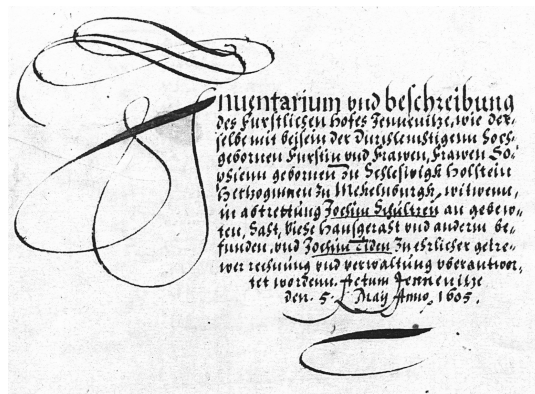 Inuentarium vnd beschreibung
des Furstlichen Hofes Jenneuitze, wie der-
selbe mit beisein der Durchleuchtigenn Hoch-
gebornen Furstin vnd Frawen, Frawen So-
phienn gebornen zu Schleswigh Holstein
Hertzoginnen zu Mekelnburgk, witwenn,
in abtrettung Jochim Schültzen an gebew-
ten, Saat, Viehe Hausgerath vnd anderm be-
funden, vnd Jochim Tiden zu ehrlicher getre-
wer rechnung vnd verwaltung vberantwor-
tet wordenn. Actum Jenneuitze
den. 5. May Anno, 1605.